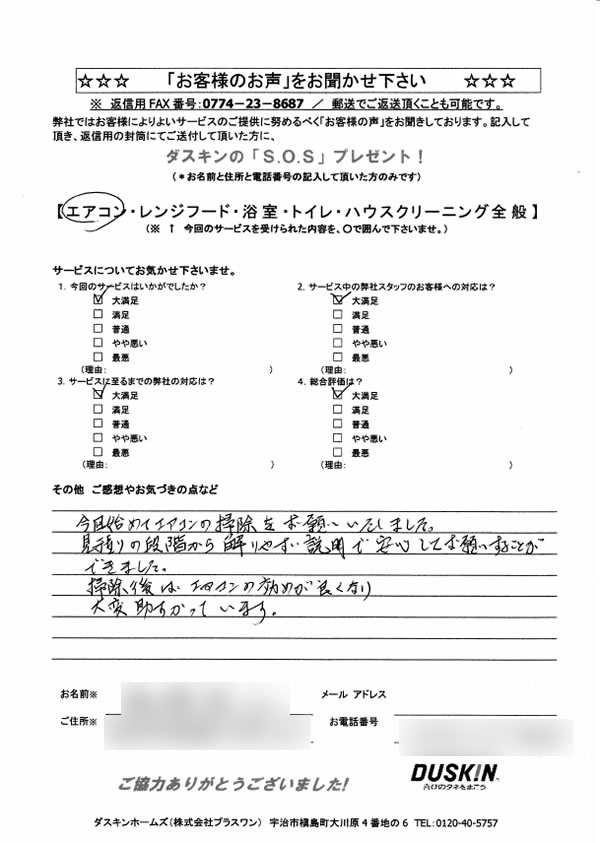 ☆☆☆ 「お客様のお声」をお聞かせ下さい ☆☆☆
※ 返信用FAX番号:0774-23-8687 / 郵送でご返送頂くことも可能です。
弊社ではお客様によりよいサービスのご提供に努めるべく「お客様の声」をお聞きしております。記入して
頂き、返信用の封筒にてご送付して頂いた方に、
ダスキンの「S.O.S」プレゼント!
(*お名前と住所と電話番号の記入して頂いた方のみです)
【エアコン・レンジフード・浴室・トイレ・ハウスクリーニング全般】
(※ ↑ 今回のサービスを受けられた内容を、〇で囲んで下さいませ。)
サービスについてお気かせ下さいませ。
1. 今回のサービスはいかがでしたか?
☑ 大満足
□ 満足
□ 普通
□ やや悪い
□ 最悪
(理由: )
2. サービス中の弊社スタッフのお客様への対応は?
☑ 大満足
□ 満足
□ 普通
□ やや悪い
□ 最悪
(理由: )
3. サービスに至るまでの弊社の対応は?
☑ 大満足
□ 満足
□ 普通
□ やや悪い
□ 最悪
(理由: )
4. 総合評価は?
☑ 大満足
□ 満足
□ 普通
□ やや悪い
□ 最悪
(理由: )
その他 ご感想やお気づきの点など
今回始めてエアコンの掃除をお願いいたしました。
見積りの段階から解りやすい説明で安心してお願いすることが
できました。
掃除後はエアコンの効めが良くなり
大変助かっています。
お名前※
メール アドレス
ご住所※
お電話番号
ご協力ありがとうございました!
DUSKIN
喜びのタネをまこう
ダスキンホームズ(株式会社プラスワン) 宇治市槇島町大川原4番地の6 TEL:0120-40-5757